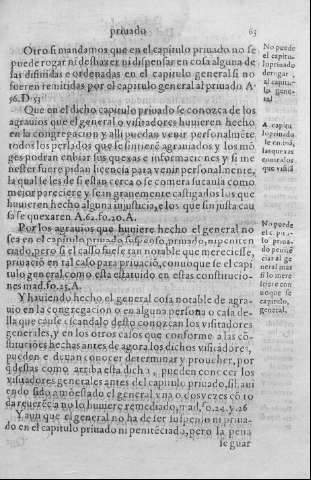 priuado
63
Otro si mandamos que en el capitulo priuado no se
puede rogar ni deshazer ni dispensar en cosa alguna de
las difinidas e ordenadas en el capitulo general si no
fueren remitidas por el capitulo general al priuado A-
56. D 53
Que en el dicho capitulo priuado se conozca de los
agrauios que el general o visitadores huuieren hecho
en la congregacion y alli puedan venir personalmēte
todos los perlados que se sintierē agrauiados y los mō
ges podran enbiar sus quexas e informaciones y si me
nester fuere pidan licencia para venir personalmente,
la qual se les de si estan cerca o se cometa su causa como
mejor pareciere y sean grauemente castigados los que
huuieren hecho alguna injusticia, e los que sin justa cau
sa se quexaren A. 62. fo. 20. A.
Por los agrauios que huuiere hecho el general no
sea en el capitulo priuado suspenso, priuado, ni peniten
ciado, pero si el casso fuere tan notable que mereciesse,
priuació en tal caso para priuació, conuoque se el capi
tulo general como esta estatuido en estas constitucio-
nes mad. fo. 25. A.
Y hauiendo hecho el general cosa notable de agra-
uio en la congregacion o en alguna persona o casa de-
lla que cause escandalo desto conozcan los visitadores
generales, y en los otros casos que conforme a las cō-
stituciōes hechas antes de agora los dichos visitadores,
pueden e deuan conocer determinar y proueher, por
q̄ destas como arriba esta dicho, pueden conocer los
visitadores generales antes del capitulo priuado, si aui
endo sido amōestado el general vna o dos vezes cō to
da reuerēcia no lo huuiere remediado, mad, fo. 24. y. 26
Y aun que el general no ha de ser suspenso ni priua
do en el capitulo priuado ni penitēciado, pero la pena
se guar
No puede
el capitu-
lo priuado
derogar
al capitu-
la gene-
ral
A capitu
lo priuado
los quexas
contra los
que visitā
No puede
el capi-
tu priua-
do priuar
al ge
neral mas
si lo mere
sciere con
uoque se
capitulo,
general.